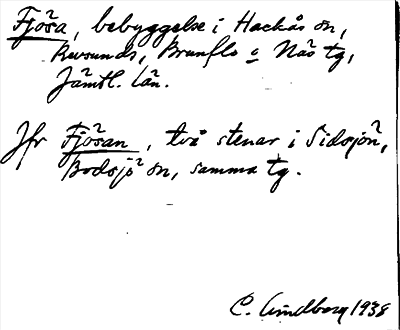 Fjösa, bebyggelse i Hackås sn,
Revsunds, Brunflo o Näs tg,
Jämtl. län.
Jfr Fjösan, två stenar i Sidsjön,
Bodsjö sn, samma tg.
C. Lindberg 1938